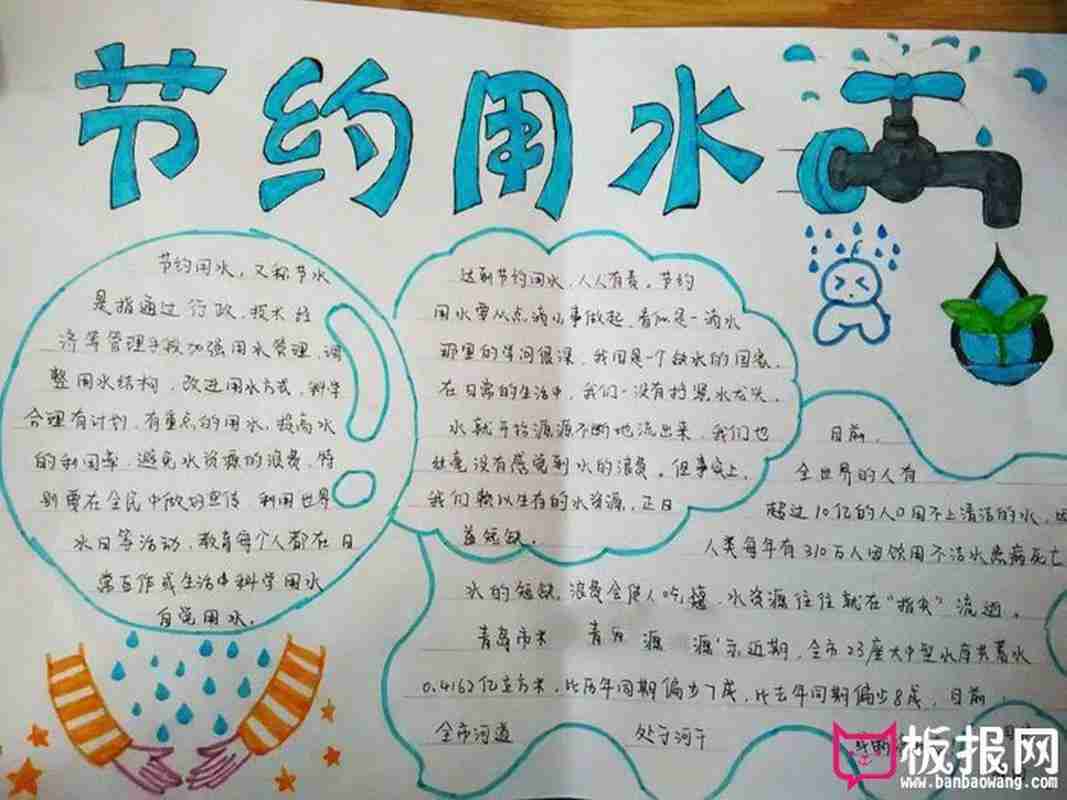 节约用水
节约用水，又称节水
是指通过行政、技术经
济等管理手段加强用水管理，调
整用水结构，改进用水方式，科学
合理有计划，有重点的用水，提高水
的利用率，避免水资源的浪费。特
别要在全民中做好宣传 利用世界
水日等活动，教育每个人都在日
常工作或生活中科学用水
自觉用水。
达到节约用水，人人有责。节约
用水要从点滴小事做起，看似是一滴水
那里的学问很深，我国是一个缺水的国家，
在日常的生活中，我们一没有拧紧水龙头，
水就开始源源不断地流出来，我们也
没有感觉到水的浪费。但事实上，
我们赖以生存的水资源，正日
益短缺。
目前，
全世界的人有
超过10亿的人口用不上清洁的水，
人类每年有310万人因饮用不洁水患病死亡
水的短缺，浪费会使人吃 水资源往往就在“指尖”流过。
青岛市水 源 源 示近期，全市23座大中型水库共蓄水
0.4162亿立方米，比历年同期偏少7成，比去年同期偏少8成，目前
全市河道 处于河干
板报网
www.banbaowang.com